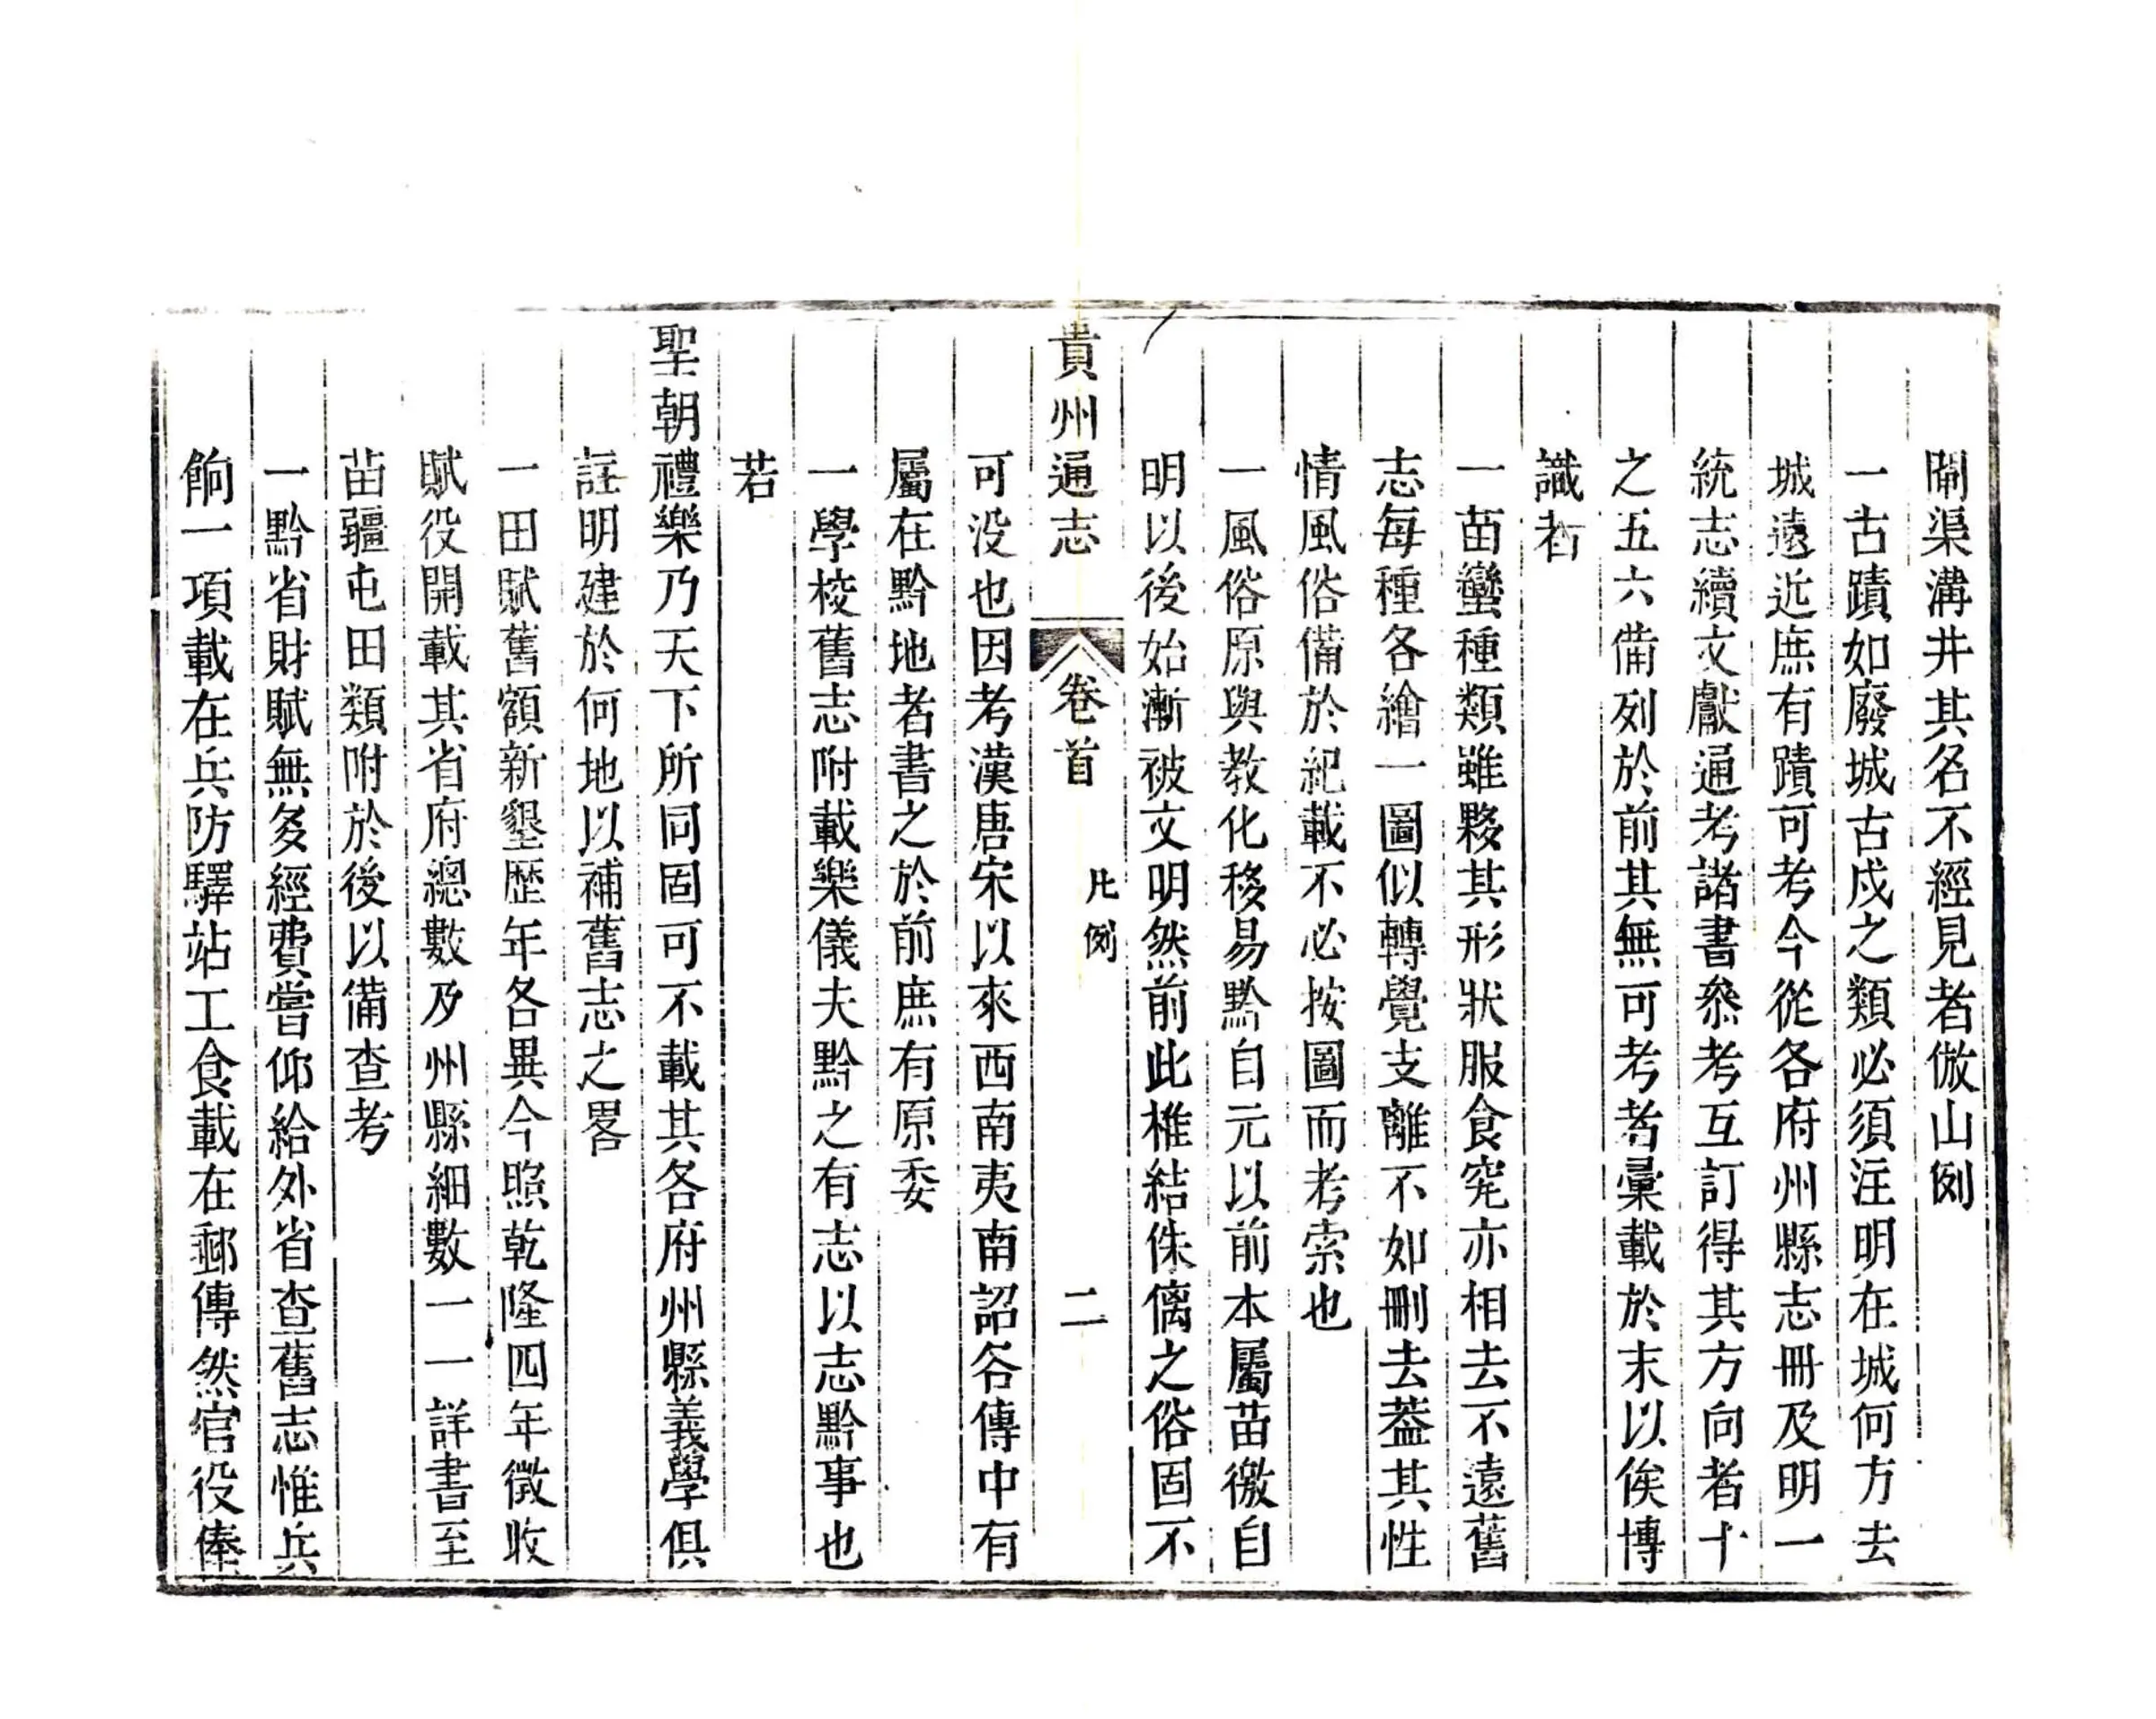 閘渠溝井其名不經見者倣山例
一古蹟如廢城古戍之類必須注明在城何方去
城遠近庶有蹟可考今從各府州縣志冊及明一
統志續文獻通考諸書叅考互訂得其方向者十
之五六備列於前其無可考者彙載於末以俟博
識者
一苗蠻種類雖夥其形狀服食究亦相去不遠舊
志每種各繪一圖似轉覺支離不如刪去葢其性
情風俗備於紀載不必按圖而考索也
一風俗原與教化移易黔自元以前本屬苗徼自
明以後始漸被文明然前此椎結侏𠌯之俗固不
貴州通志 卷首 凡例 二
可没也因考漢唐宋以來西南夷南詔各傳中有
屬在黔地者書之於前庶有原委
一學校舊志附載樂儀夫黔之有志以志黔事也
若
聖朝禮樂乃天下所同固可不載其各府州縣義學俱
註明建於何地以補舊志之畧
一田賦舊額新墾歷年各異今照乾隆四年徵收
賦役開載其省府總數及州縣細數一一詳書至
苗疆屯田類附於後以備查考
一黔省財賦無多經費嘗仰給外省查舊志惟兵
餉一項載在兵防驛站工食載在郵傳然官役俸